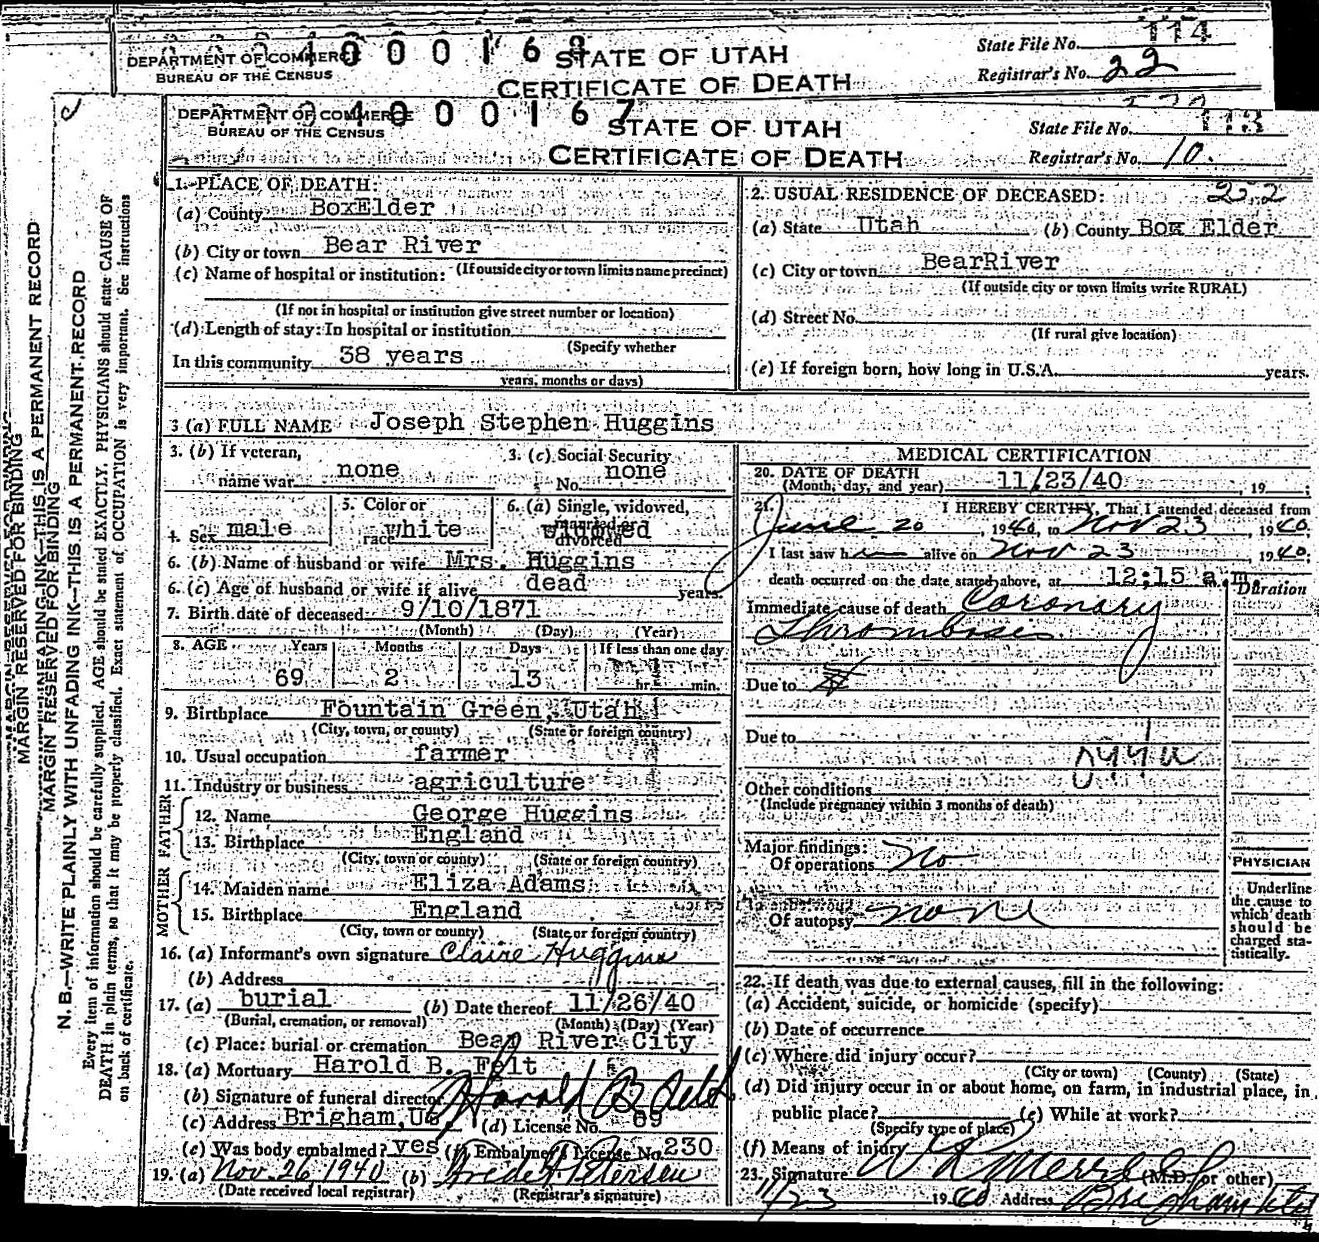 4 0 0 0 1 6 8
DEPARTMENT OF COMMERCE
BUREAU OF THE CENSUS
STATE OF UTAH
CERTIFICATE OF DEATH
State File No. 114
Registrar's No. 22
4 0 0 0 1 6 7
DEPARTMENT OF COMMERCE
BUREAU OF THE CENSUS
STATE OF UTAH
CERTIFICATE OF DEATH
State File No. 113
Registrar's No. 10.
MARGIN RESERVED FOR BINDING
MARGIN RESERVED FOR BINDING
N. B.—WRITE PLAINLY WITH UNFADING INK—THIS IS A PERMANENT RECORD
Every item of information should be carefully supplied. AGE should be stated EXACTLY. PHYSICIANS should state CAUSE OF
DEATH in plain terms, so that it may be properly classified. Exact statement of OCCUPATION is very important. See instructions
on back of certificate.
1. PLACE OF DEATH:
(a) County BoxElder
(b) City or town Bear River
(If outside city or town limits name precinct)
(c) Name of hospital or institution:
(If not in hospital or institution give street number or location)
(d) Length of stay: In hospital or institution
(Specify whether
In this community 38 years
years, months or days)
2. USUAL RESIDENCE OF DECEASED: 222
(a) State Utah (b) County Box Elder
(c) City or town BearRiver
(If outside city or town limits write RURAL)
(d) Street No.
(If rural give location)
(e) If foreign born, how long in U.S.A. years.
3 (a) FULL NAME Joseph Stephen Huggins
3. (b) If veteran, name war none
3. (c) Social Security No. none
4. Sex male
5. Color or race white
6. (a) Single, widowed, married or divorced widowed
6. (b) Name of husband or wife Mrs. Huggins
6. (c) Age of husband or wife if alive dead years
7. Birth date of deceased 9/10/1871
(Month) (Day) (Year)
8. AGE Years Months Days If less than one day
69 2 13 hr. min.
9. Birthplace Fountain Green, Utah
(City, town, or county) (State or foreign country)
10. Usual occupation farmer
11. Industry or business agriculture
FATHER
12. Name George Huggins
13. Birthplace England
(City, town or county) (State or foreign country)
MOTHER
14. Maiden name Eliza Adams
15. Birthplace England
(City, town or county) (State or foreign country)
16. (a) Informant's own signature Claire Huggins
(b) Address
17. (a) burial (b) Date thereof 11/26/40
(Burial, cremation, or removal) (Month) (Day) (Year)
(c) Place: burial or cremation Bear River City
18. (a) Mortuary Harold B. Felt
(b) Signature of funeral director Harold B Felt
(c) Address Brigham, Ut (d) License No. 69
(e) Was body embalmed? yes (f) Embalmer's License No. 230
19. (a) Nov. 26 1940 (b) Petersen
(Date received local registrar) (Registrar's signature)
MEDICAL CERTIFICATION
20. DATE OF DEATH
(Month, day, and year) 11/23/40, 19
21. I HEREBY CERTIFY, That I attended deceased from
June 20 1940, to Nov 23 1940
I last saw h alive on Nov 23 1940;
death occurred on the date stated above, at 12:15 a.m.
Duration
Immediate cause of death Coronary
Thrombosis
Due to
Due to
Other conditions
(Include pregnancy within 3 months of death)
Major findings:
Of operations no
Of autopsy none
PHYSICIAN
Underline
the cause to
which death
should be
charged sta-
tistically.
22. If death was due to external causes, fill in the following:
(a) Accident, suicide, or homicide (specify)
(b) Date of occurrence
(c) Where did injury occur?
(City or town) (County) (State)
(d) Did injury occur in or about home, on farm, in industrial place, in
public place? (e) While at work?
(Specify type of place)
(f) Means of injury
23. Signature (M.D. or other)
11/23 1940 Address Brigham Utah